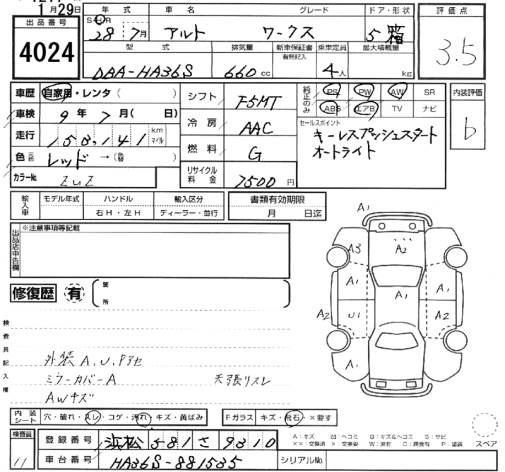 1月29日
出品番号
4024
年式 車名 グレード ドア・形状
S・H・R 28年7月 アルト ワークス 5 箱
型式 排気量 新車保証書 有無記入 乗車定員 最大積載量
DAA-HA36S 660cc 4人 kg
評価点
3.5
車歴 自家用・レンタ( )
車検 9年7月( 日)
走行 158,141 km マイル
色 レッド →(替 )
カラーNo. ZUZ
シフト F5MT
冷房 AAC
燃料 G
リサイクル料金 7500円
純正のみ PS PW AW SR
ABS エアB TV ナビ
セールスポイント
キーレスプッシュスタート
オートライト
内装評価
b
輸入車 モデル年式 ハンドル 輸入区分
右H・左H ディーラー・並行
書類有効期限
月 日迄
出品店申告欄
※注意事項等記載
修復歴 有 箇所
検査員記入欄
外装A、U、Pアセ
ミラーカバーA 天張リスレ
AWキズ
A1
A3 A2
A1 A1 A1
A2 U1 A2
A2 A2
内装シート 穴・破れ・スレ・コゲ・汚れ・キズ・黄ばみ
Fガラス キズ・飛石・×要す
A:キズ U:ヘコミ B:キズ&ヘコミ S:サビ
××:交換済 ×:交換要 W:波打 C:腐食有 P:塗装
スペア
検査員
11
登録番号 浜松 581 さ 9810
車台番号 HA36S-881535
シリアルNo.